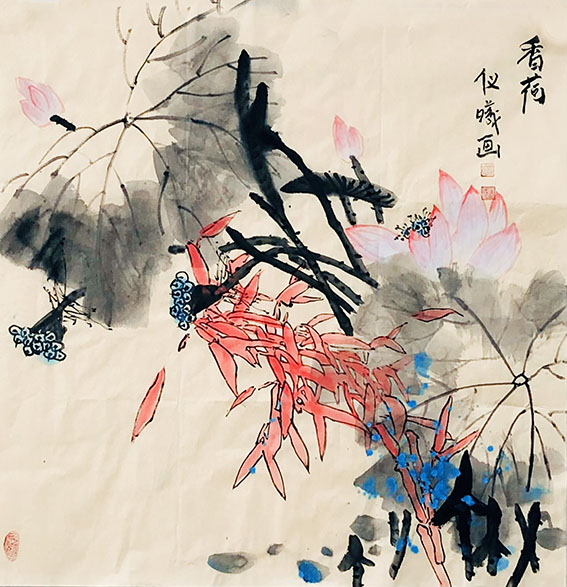 香荷
仪曦画